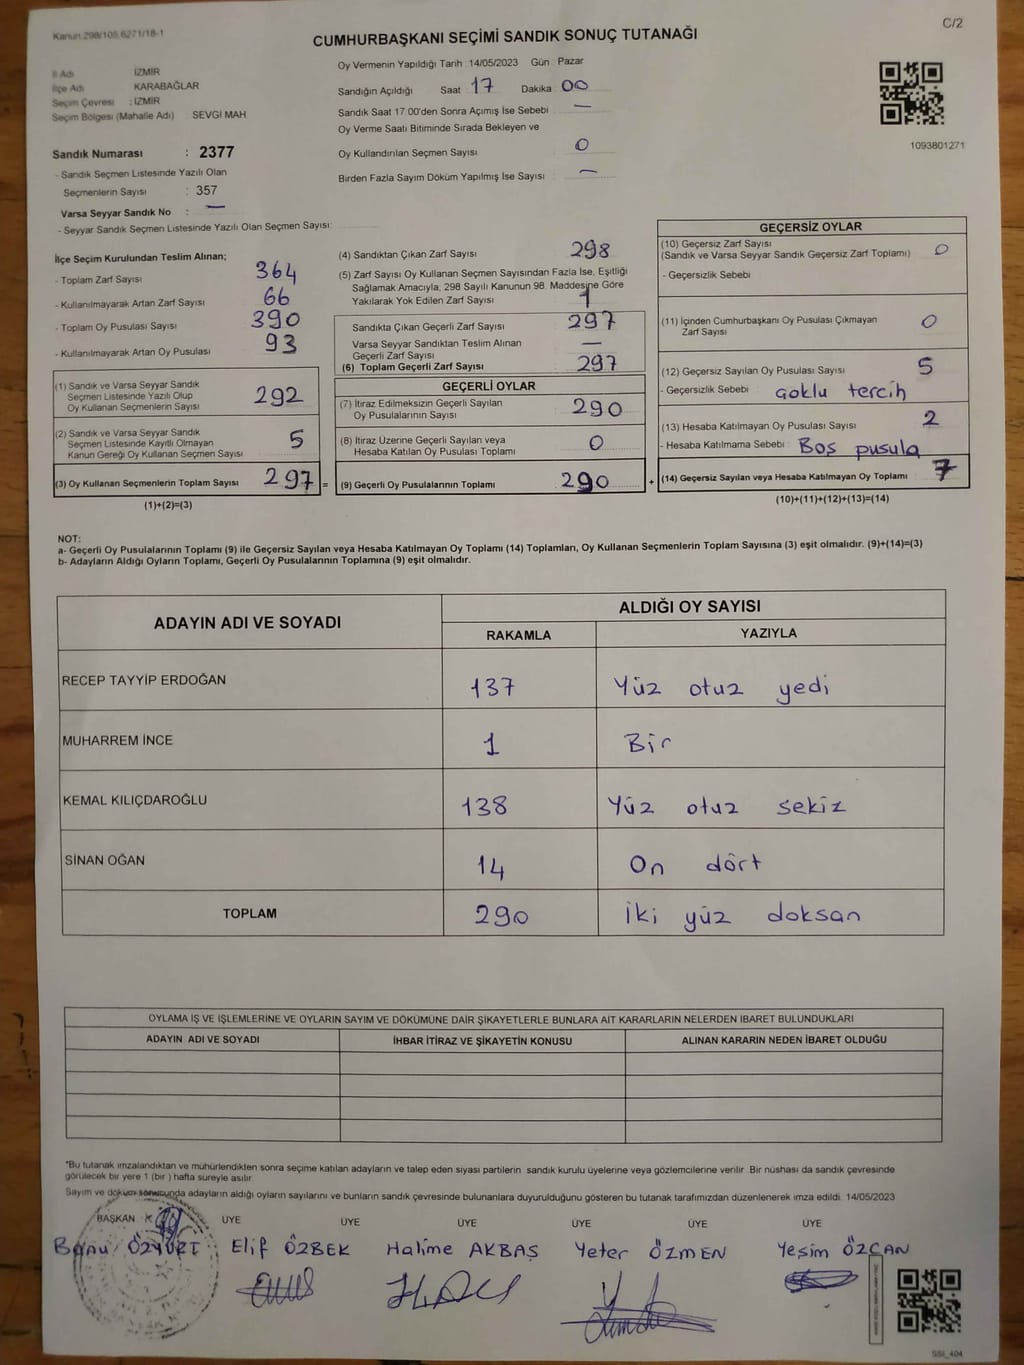 Kanun 298/105,6271/18-1
C/2
CUMHURBAŞKANI SEÇİMİ SANDIK SONUÇ TUTANAĞI
İl Adı : İZMİR
İlçe Adı : KARABAĞLAR
Seçim Çevresi : İZMİR
Seçim Bölgesi (Mahalle Adı) SEVGİ MAH
Sandık Numarası : 2377
- Sandık Seçmen Listesinde Yazılı Olan
Seçmenlerin Sayısı : 357
Varsa Seyyar Sandık No : —
- Seyyar Sandık Seçmen Listesinde Yazılı Olan Seçmen Sayısı:
Oy Vermenin Yapıldığı Tarih : 14/05/2023 Gün : Pazar
Sandığın Açıldığı Saat 17 Dakika 00
Sandık Saat 17:00'den Sonra Açımış İse Sebebi —
Oy Verme Saati Bitiminde Sırada Bekleyen ve
Oy Kullandırılan Seçmen Sayısı 0
Birden Fazla Sayım Döküm Yapılmış İse Sayısı —
1093801271
İlçe Seçim Kurulundan Teslim Alınan;
- Toplam Zarf Sayısı 364
- Kullanılmayarak Artan Zarf Sayısı 66
- Toplam Oy Pusulası Sayısı 390
- Kullanılmayarak Artan Oy Pusulası 93
(1) Sandık ve Varsa Seyyar Sandık
Seçmen Listesinde Yazılı Olup
Oy Kullanan Seçmenlerin Sayısı 292
(2) Sandık ve Varsa Seyyar Sandık
Seçmen Listesinde Kayıtlı Olmayan
Kanun Gereği Oy Kullanan Seçmen Sayısı 5
(3) Oy Kullanan Seçmenlerin Toplam Sayısı 297 =
(1)+(2)=(3)
(4) Sandıktan Çıkan Zarf Sayısı 298
(5) Zarf Sayısı Oy Kullanan Seçmen Sayısından Fazla İse, Eşitliği
Sağlamak Amacıyla, 298 Sayılı Kanunun 98. Maddesine Göre
Yakılarak Yok Edilen Zarf Sayısı 1
Sandıkta Çıkan Geçerli Zarf Sayısı 297
Varsa Seyyar Sandıktan Teslim Alınan
Geçerli Zarf Sayısı —
(6) Toplam Geçerli Zarf Sayısı 297
GEÇERLİ OYLAR
(7) İtiraz Edilmeksizin Geçerli Sayılan
Oy Pusulalarının Sayısı 290
(8) İtiraz Üzerine Geçerli Sayılan veya
Hesaba Katılan Oy Pusulası Toplamı 0
(9) Geçerli Oy Pusulalarının Toplamı 290 +
GEÇERSİZ OYLAR
(10) Geçersiz Zarf Sayısı
(Sandık ve Varsa Seyyar Sandık Geçersiz Zarf Toplamı) 0
- Geçersizlik Sebebi
(11) İçinden Cumhurbaşkanı Oy Pusulası Çıkmayan
Zarf Sayısı 0
(12) Geçersiz Sayılan Oy Pusulası Sayısı 5
- Geçersizlik Sebebi : Çoklu tercih
(13) Hesaba Katılmayan Oy Pusulası Sayısı 2
- Hesaba Katılmama Sebebi : Boş pusula
(14) Geçersiz Sayılan veya Hesaba Katılmayan Oy Toplamı : 7
(10)+(11)+(12)+(13)=(14)
NOT:
a- Geçerli Oy Pusulalarının Toplamı (9) ile Geçersiz Sayılan veya Hesaba Katılmayan Oy Toplamı (14) Toplamları, Oy Kullanan Seçmenlerin Toplam Sayısına (3) eşit olmalıdır. (9)+(14)=(3)
b- Adayların Aldığı Oyların Toplamı, Geçerli Oy Pusulalarının Toplamına (9) eşit olmalıdır.
ADAYIN ADI VE SOYADI ALDIĞI OY SAYISI
RAKAMLA YAZIYLA
RECEP TAYYİP ERDOĞAN 137 Yüz otuz yedi
MUHARREM İNCE 1 Bir
KEMAL KILIÇDAROĞLU 138 Yüz otuz sekiz
SİNAN OĞAN 14 On dört
TOPLAM 290 İki yüz doksan
OYLAMA İŞ VE İŞLEMLERİNE VE OYLARIN SAYIM VE DÖKÜMÜNE DAİR ŞİKAYETLERLE BUNLARA AİT KARARLARIN NELERDEN İBARET BULUNDUKLARI
ADAYIN ADI VE SOYADI İHBAR İTİRAZ VE ŞİKAYETİN KONUSU ALINAN KARARIN NEDEN İBARET OLDUĞU
*Bu tutanak imzalandıktan ve mühürlendikten sonra seçime katılan adayların ve talep eden siyasi partilerin sandık kurulu üyelerine veya gözlemcilerine verilir. Bir nüshası da sandık çevresinde
görülecek bir yere 1 (bir ) hafta süreyle asılır.
Sayım ve döküm sonucunda adayların aldığı oyların sayılarını ve bunların sandık çevresinde bulunanlara duyurulduğunu gösteren bu tutanak tarafımızdan düzenlenerek imza edildi. 14/05/2023
BAŞKAN ÜYE ÜYE ÜYE ÜYE ÜYE ÜYE
Banu ÖZYURT Elif ÖZBEK Halime AKBAŞ Yeter ÖZMEN Yeşim ÖZCAN
SSI_404